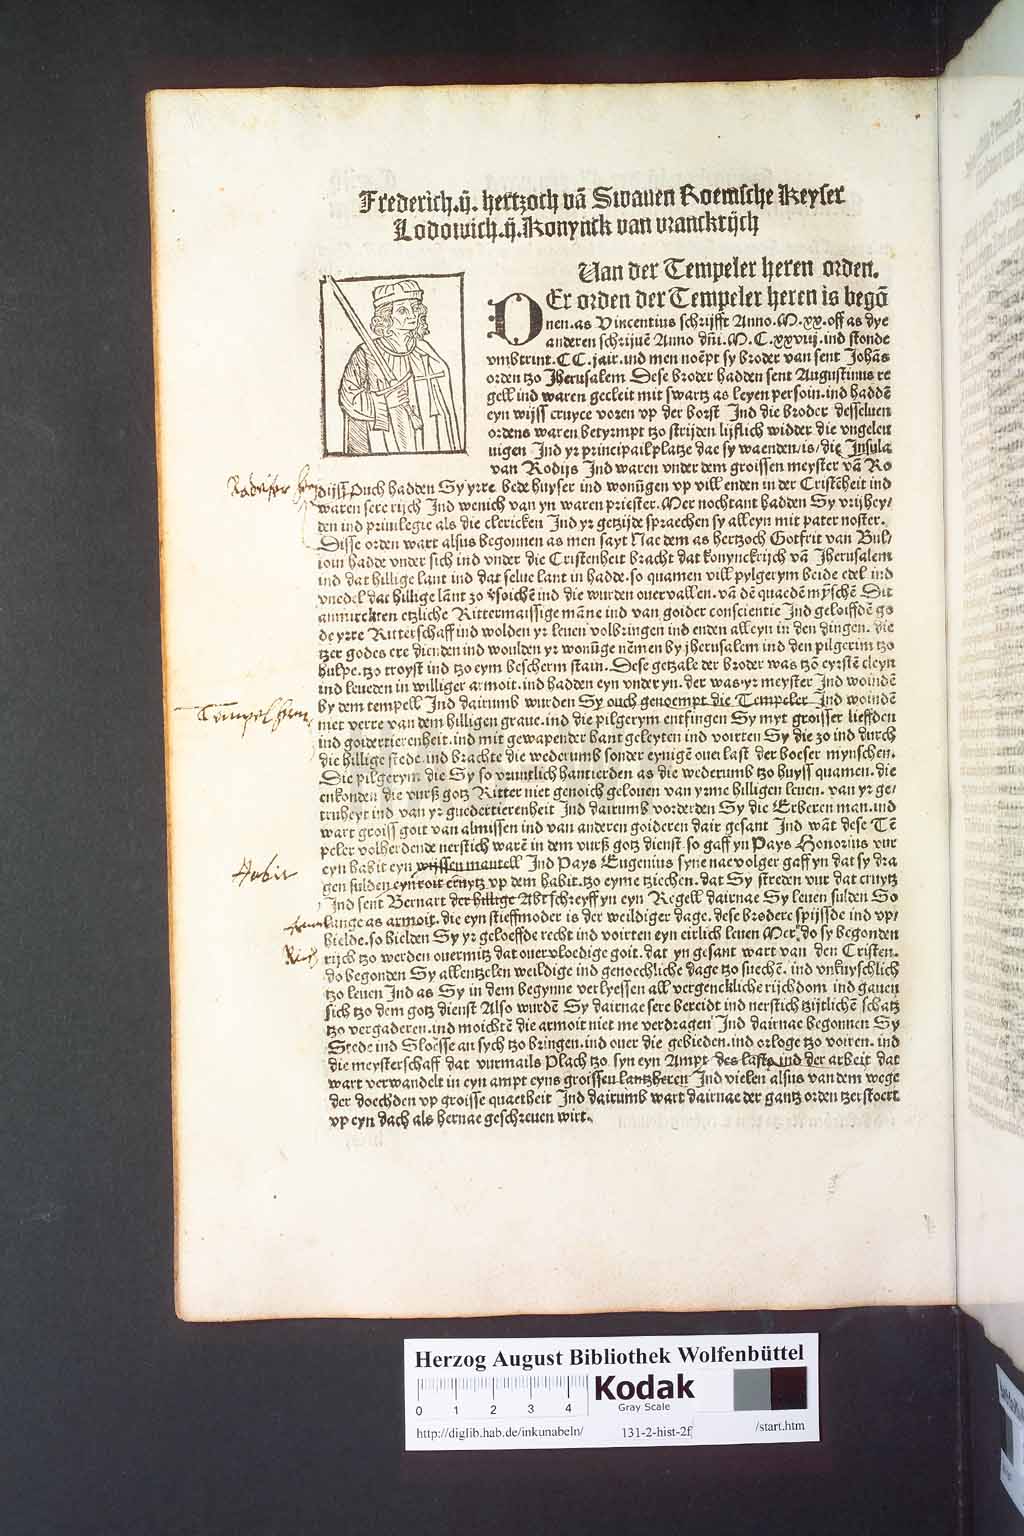 Frederich.ij. hertzoch vā Swauen Roemsche Keyser
Lodowich.ij. Konynck van vranckrijch
Van der Tempeler heren orden.
DEr orden der Tempeler heren is begō
nen. as Vincentius schrijfft Anno. M. xx. off as dye
anderen schrijuē Anno dñi. M. C. xxviij. ind stonde
vmbtrint. CC. jair. ind men noēpt sy broder van sent Johās
orden tzo Jherusalem Dese broder hadden sent Augustinus re
gell ind waren gecleit mit swartz as leyen persoin. ind haddē
eyn wijss cruyce voren vp der borst Ind die broder desseluen
ordens waren betyrmpt tzo strijden lijflich widder die vngeleu
uigen Ind yr principailplatze dae sy waenden/is/die Insula
van Rodijs Ind waren vnder dem groissen meyster vā Ro
dijss Ouch hadden Sy yrre bede huyser ind wonūgen vp vill enden in der Cristēheit ind
waren sere rijch Ind wenich van yn waren priester. Mer nochtant hadden Sy vrijhey/
den ind priuilegie als die clericken Ind yr getzijde spraechen sy alleyn mit pater noster.
Disse orden wart alsus begonnen as men sayt Nae dem as hertzoch Gotfrit van Bul/
ioin hadde vnder sich ind vnder die Cristenheit bracht dat konynckrijch vā Jherusalem
ind dat hillige lant ind dat selue lant in hadde. so quamen vill pylgerym beide edel ind
vnedel dat hillige lānt zo v̄soichē ind die wurden ouervallen. vā dē quaedē mȳschē Dit
anmirckten etzliche Rittermaissige māne ind van goider conscientie Ind geloiffdē go
de yrre Ritterschaff ind wolden yr leuen volbringen ind enden alleyn in den dingen. die
tzer godes ere dienden ind woulden yr wonūge nēmen by jherusalem ind den pilgerim tzo
hulpe. tzo troyst ind tzo eym bescherm stain. Dese getzale der broder was tzō eyrstē cleyn
ind leueden in williger armoit. ind hadden eyn vnder yn. der was yr meyster Ind woindē
by dem tempell Ind dairumb wurden Sy ouch genoempt die Tempeler Ind woindē
niet verre van dem hilligen graue. ind die pilgerym entfingen Sy myt groisser lieffden
ind goidertierenheit. ind mit gewapender hant geleyten ind voirten Sy die zo ind durch
die hillige stede. ind brachte die wederumb sonder eynigē ouerlast der boeser mynschen.
Die pilgerym die Sy so vruntlich hantierden as die wederumb tzo huyss quamen. die
enkonden die vurß gotz Ritter niet genoich gelouen van yrme hilligen leuen. van yr ge/
truheyt ind van yr guedertierenheit Ind dairumb vorderden Sy die Erberen man. ind
wart groiss goit van almissen ind van anderen goideren dair gesant Ind wāt dese Tē
peler volherdende nerstich warē in dem vurß gotz dienst. so gaff yn Pays Honorius vur
eyn habit eyn wijssen mantell Ind Pays Eugenius syne naevolger gaff yn dat sy dra
gen sulden eyn roit cruytz vp dem habit. tzo eyme tziechen. dat Sy streden vur dat cruytz
Ind sent Bernart der hillige Abt schreyff yn eyn Regell dairnae Sy leuen sulden So
lange as armoit. die eyn stieffmoder is der weildiger dage. dese brodere spijssde ind vp/
hielde. so hielden Sy yr geloeffde recht ind voirten eyn eirlich leuen Mer do sy begonden
rijch tzo werden ouermitz dat ouervloedige goit. dat yn gesant wart van den Cristen.
do begonden Sy allentzelen weildige ind genoechliche dage tzo suechē. ind vnkuyschlich
tzo leuen Ind as Sy in dem begynne verlyessen all vergenckliche rijchdom ind gauen
sich tzo dem gotz dienst Also wurdē Sy dairnae sere bereidt ind nerstich tzijtlichē schatz
tzo vergaderen. ind moichtē die armoit niet me verdragen Ind dairnae begonnen Sy
Stede ind Sloesse an sych tzo bringen. ind ouer die gebieden. ind orloge tzo voiren. ind
die meysterschaff dat vurmails Plach tzo syn eyn Ampt des lasts ind der arbeit dat
wart verwandelt in eyn ampt eyns groissen lantzheren Ind vielen alsus van dem wege
der doechden vp groisse quaetheit Ind dairumb wart dairnae der gantz orden tzerstoert
vp eyn dach als hernae geschreuen wirt.
Habit
Rich
Herzog August Bibliothek Wolfenbüttel
0 1 2 3 4
Kodak
Gray Scale
http://diglib.hab.de/inkunabeln/ 131-2-hist-2f /start.htm